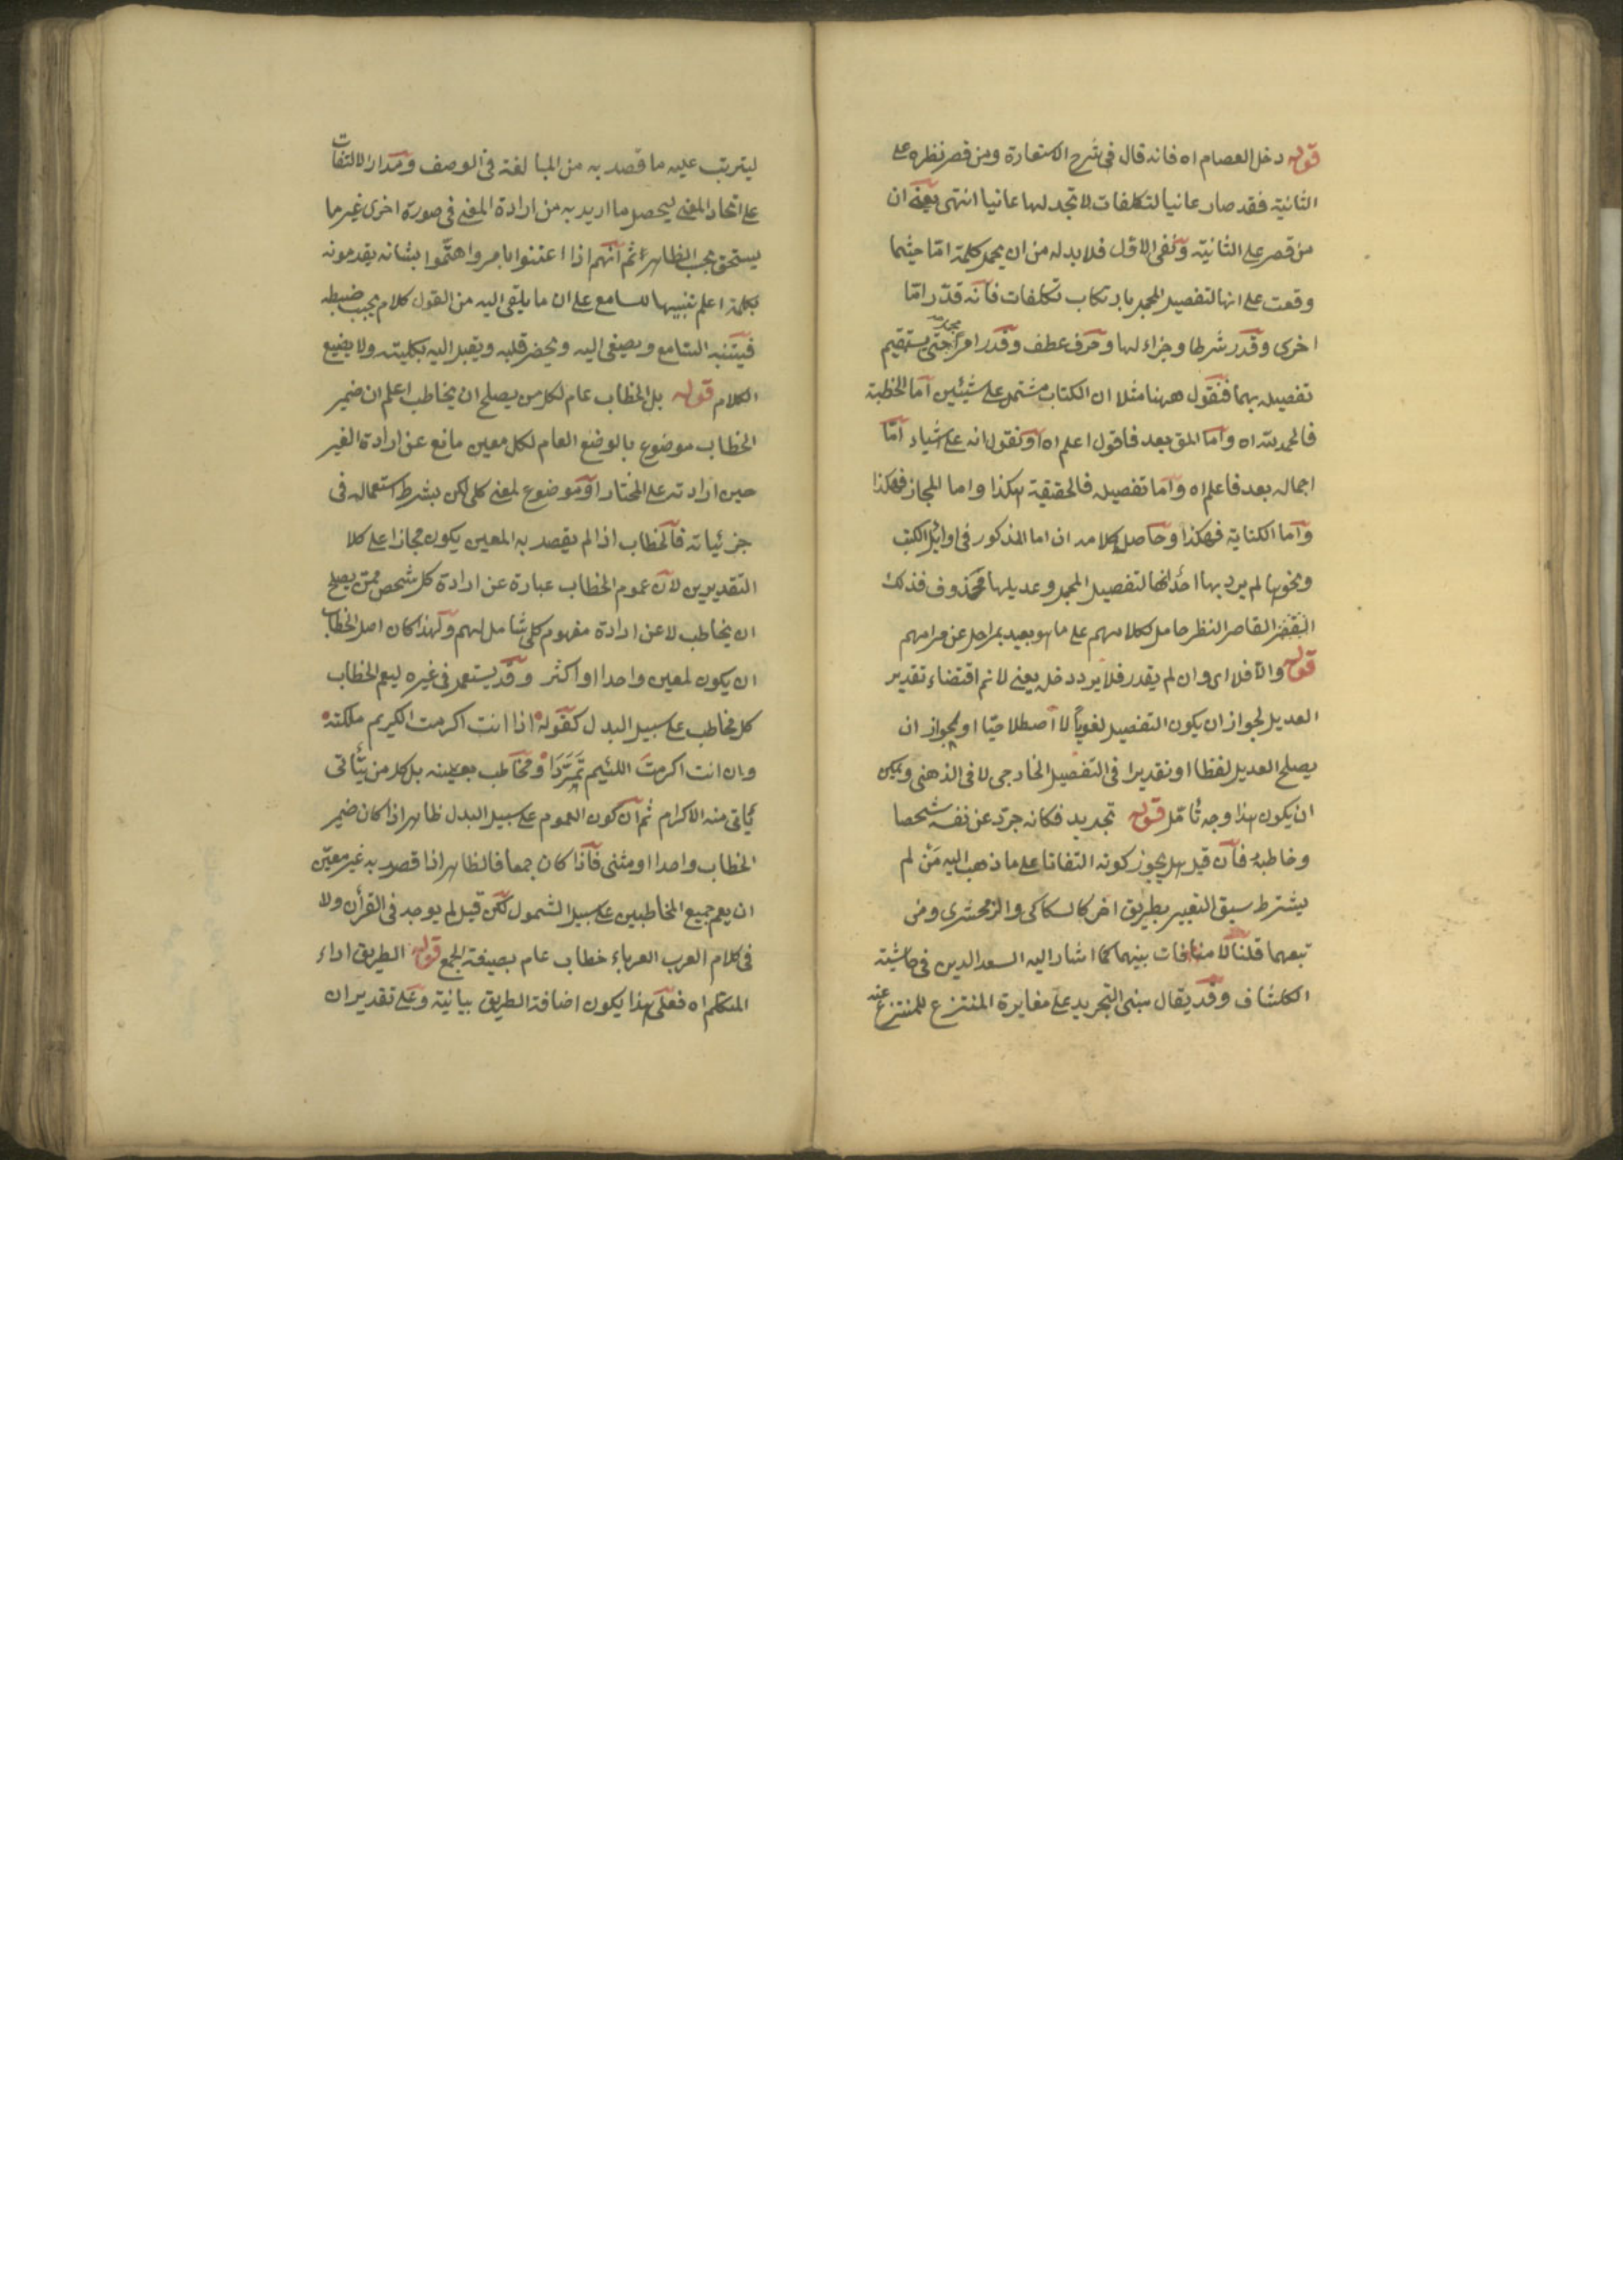 قوله دخل العصام اه فانه قال فى شرح الاستعارة ومن قصر نظره على
الثانية فقد صار عانيا لتكلفات لا تجد لها عانيا انتهى يعنى ان
من قصر على الثانية ونفى الاول فلا بد له من ان يحمل كلمة اما حيثما
وقعت على انها لتفصيل المجمل بارتكاب تكلفات فانه قدّر امّا
اخرى وقدر شرطا وجزاء لها وحرف عطف وقدر امرا مجملا حتى يستقيم
تفصيله بهما فنقول ههنا مثلا ان الكتاب مشتمل على شيئين اما الخطبة
فالحمد لله اه واما المق بعد فاقول اعلم اه او نقول انه على اشياء امّا
اجماله بعد فاعلم اه واما تفصيله فالحقيقة هكذا واما المجاز فهكذا
واما الكناية فهكذا وحاصل كلامه ان اما المذكور فى اوائل الكتب
ونحوها لم يرد بها احد انها لتفصيل المجمل وعديلها محذوف فذلك
البعض القاصر النظر حامل لكلامهم على ما هو بعيد بمراحل عن مرامهم
قوله والا فلا اى وان لم يقدر فلا يرد دخله يعنى لا نم اقتضاء تقدير
العديل لجواز ان يكون التفصيل لغوياً لا اصطلاحيّا او لجواز ان
يصلح العديل لفظا او تقديرا فى التفصيل الخارجى لا فى الذهنى ويمكن
ان يكون هذا وجه تامّل قوله تجريد فكانه جرّد عن نفسه شخصا
وخاطبه فان قيل هل يجوز كونه التفاتا على ما ذهب اليه مَنْ لم
يشترط سبق التعبير بطريق اخر كالسكاكى والزمخشرى ومن
تبعهما قلنا لا منافات بينهما كما اشار اليه السعد الدين فى حاشيته
الكشاف وقد يقال مبنى التجريد على مغايرة المنتزع للمنتزع عنه
ليترتب عليه ما قصد به من المبالغة فى الوصف ومدار الالتفات
على اتحاد المعنى ليحصل ما اريد به من ارادة المعنى فى صورة اخرى غير ما
يستحق بحسب الظاهر ثم انهم اذا اعتنوا بامر واهتّموا بشانه يقدمونه
بكلمة اعلم تنبيها للسامع على ان ما يلقى اليه من القول كلام يجب ضبطه
فيتنبه السامع ويصغى اليه ويحضر قلبه ويقبل اليه بكليته ولا يضيع
الكلام قوله بل الخطاب عام لكل من يصلح ان يخاطب اعلم ان ضمير
الخطاب موضوع بالوضع العام لكل معين مانع عن ارادة الغير
حين ارادته على المختار او موضوع لمعنى كلى لكن بشرط استعماله فى
جزئياته فالخطاب اذا لم يقصد به المعين يكون مجازا على كلا
التقديرين لان عموم الخطاب عبارة عن ارادة كل شخص ممن يصلح
ان يخاطب لا عن ارادة مفهوم كلى شامل لهم ولهذا كان اصل الخطاب
ان يكون لمعين واحدا او اكثر وقد يستعمل فى غيره ليعم الخطاب
كل مخاطب على سبيل البدل كقوله اذا انت اكرمت الكريم ملكته
وان انت اكرمتَ اللئيم تَمَرَّدَا ومخاطب بعينه بل كل من يتأتى
يأتى منه الاكرام ثم ان كون العموم على سبيل البدل ظاهر اذا كان ضمير
الخطاب واحدا او مثنى فاذا كان جمعا فالظاهر اذا قصد به غير معيّن
ان يعم جميع المخاطبين على سبيل الشمول لكن قيل لم يوجد فى القرأن ولا
فى كلام العرب العرباء خطاب عام بصيغة الجمع قوله الطريق اداء
المتكلم اه فعلى هذا يكون اضافة الطريق بيانية وعلى تقدير ان